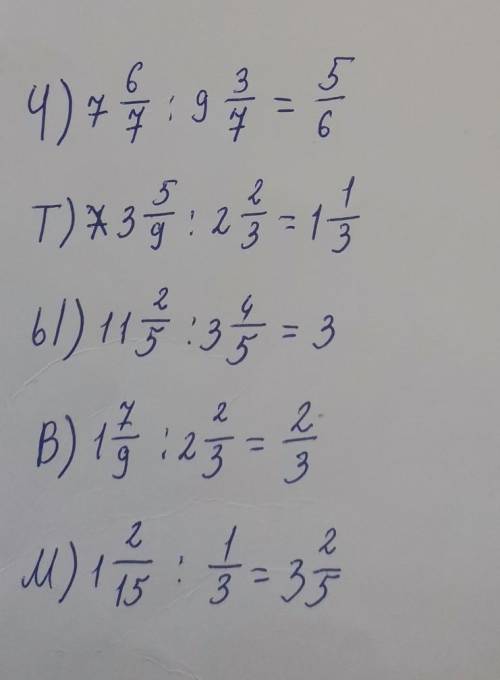 Ч) 7 6/7 : 9 3/7 = 5/6
Т) 3 5/9 : 2 2/3 = 1 1/3
Ы) 11 2/5 : 3 4/5 = 3
В) 1 7/9 : 2 2/3 = 2/3
М) 1 2/15 : 1/3 = 3 2/5